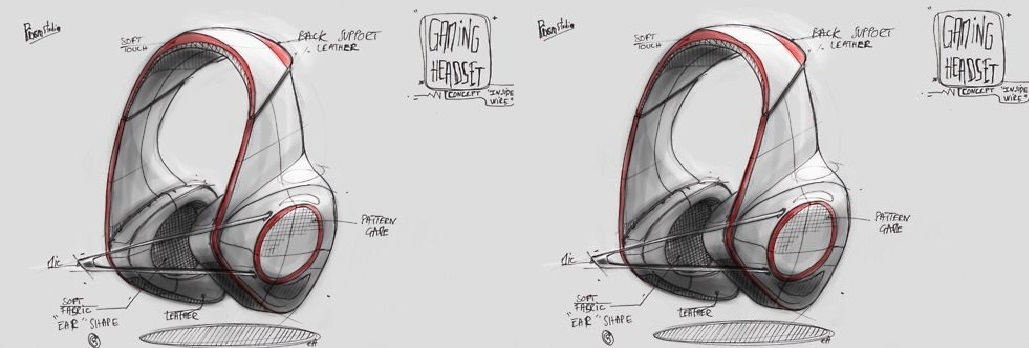 SOFT
TOUCH
BACK SUPPORT
LEATHER
GAMING
HEADSET
CONCEPT "INSIDE
WIRE"
PATTERN
GARE
Mic
SOFT
FABRIC
"EAR" SHAPE
LEATHER
SOFT
TOUCH
BACK SUPPORT
LEATHER
GAMING
HEADSET
CONCEPT "INSIDE
WIRE"
PATTERN
GARE
Mic
SOFT
FABRIC
"EAR" SHAPE
LEATHER